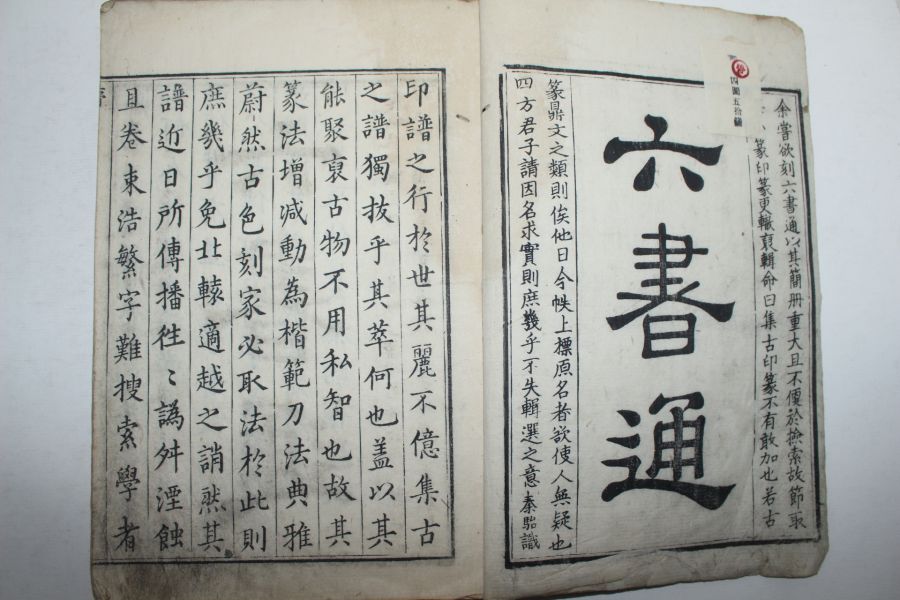 余嘗欲刻六書通以其簡冊重大且不便於撿索故節取
篆印篆更輙裒輯命曰集古印篆不有敢加也若古
六書通
篆鼎文之類則俟他日今帙上標原名者欲使人無疑也
四方君子請因名求實則庶幾乎不失輯選之意 秦駘識
印譜之行於世其麗不億集古
之譜獨抜乎其萃何也盖以其
能聚裒古物不用私智也故其
篆法增減動為楷範刀法典雅
蔚然古色刻家必取法於此則
庶幾乎免北轅適越之誚然其
譜近日所傳播徃〻譌舛湮蝕
且卷束浩繁字難搜索學者
序